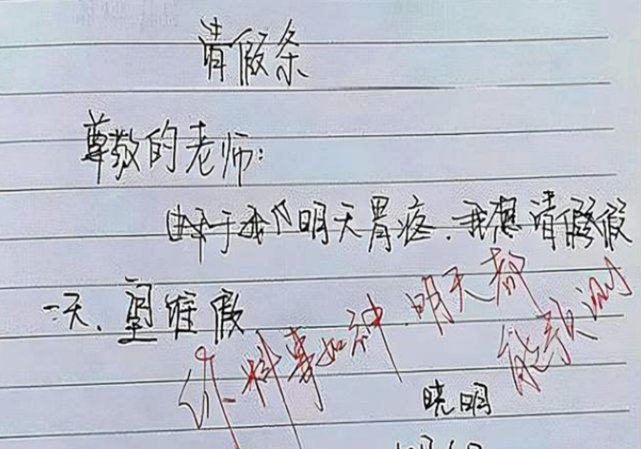 请假条
尊敬的老师：
由于我明天胃疼，我想请假
一天、望准假
你料事如神，明天都
能预测
晓明